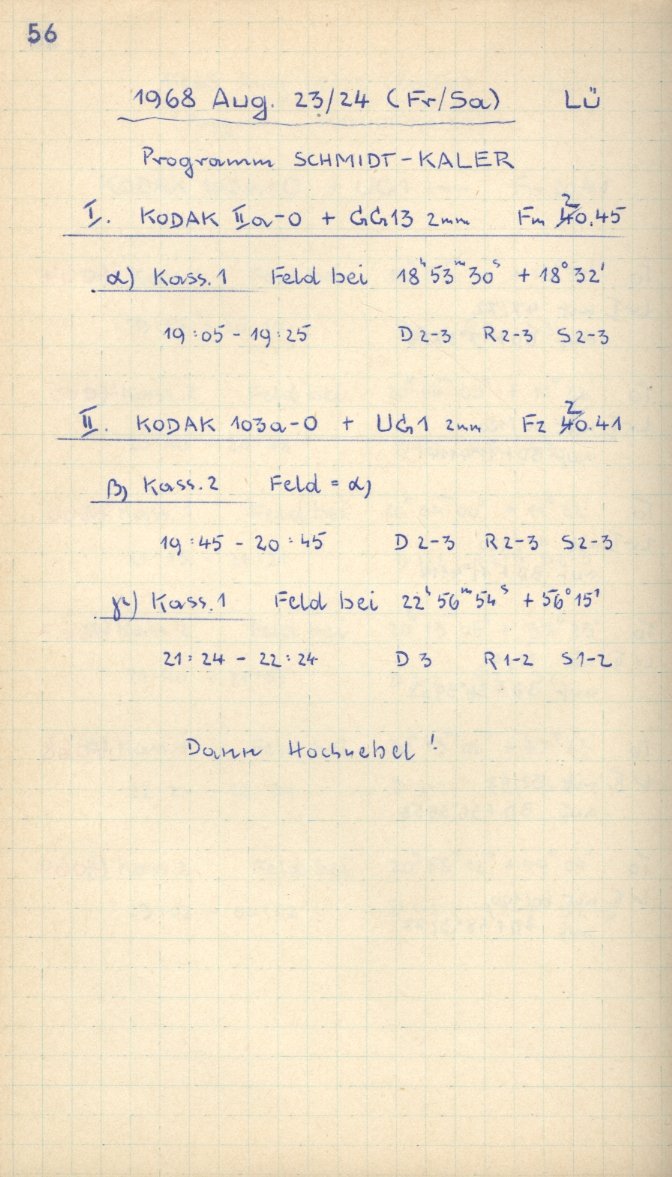 56
1968 Aug. 23/24 (Fr/Sa) LÜ
Programm SCHMIDT-KALER
I. KODAK IIa-O + GG13 2mm Fm 20.45
α) Kass.1 Feld bei 18ʰ53ᵐ30ˢ +18°32'
19:05 - 19:25 D2-3 R2-3 S2-3
II. KODAK 103a-O + UG1 2mm Fz 20.41
β) Kass.2 Feld = α)
19:45 - 20:45 D2-3 R2-3 S2-3
γ) Kass.1 Feld bei 22ʰ56ᵐ54ˢ +56°15'
21:24 - 22:24 D3 R1-2 S1-2
Dann Hochnebel!